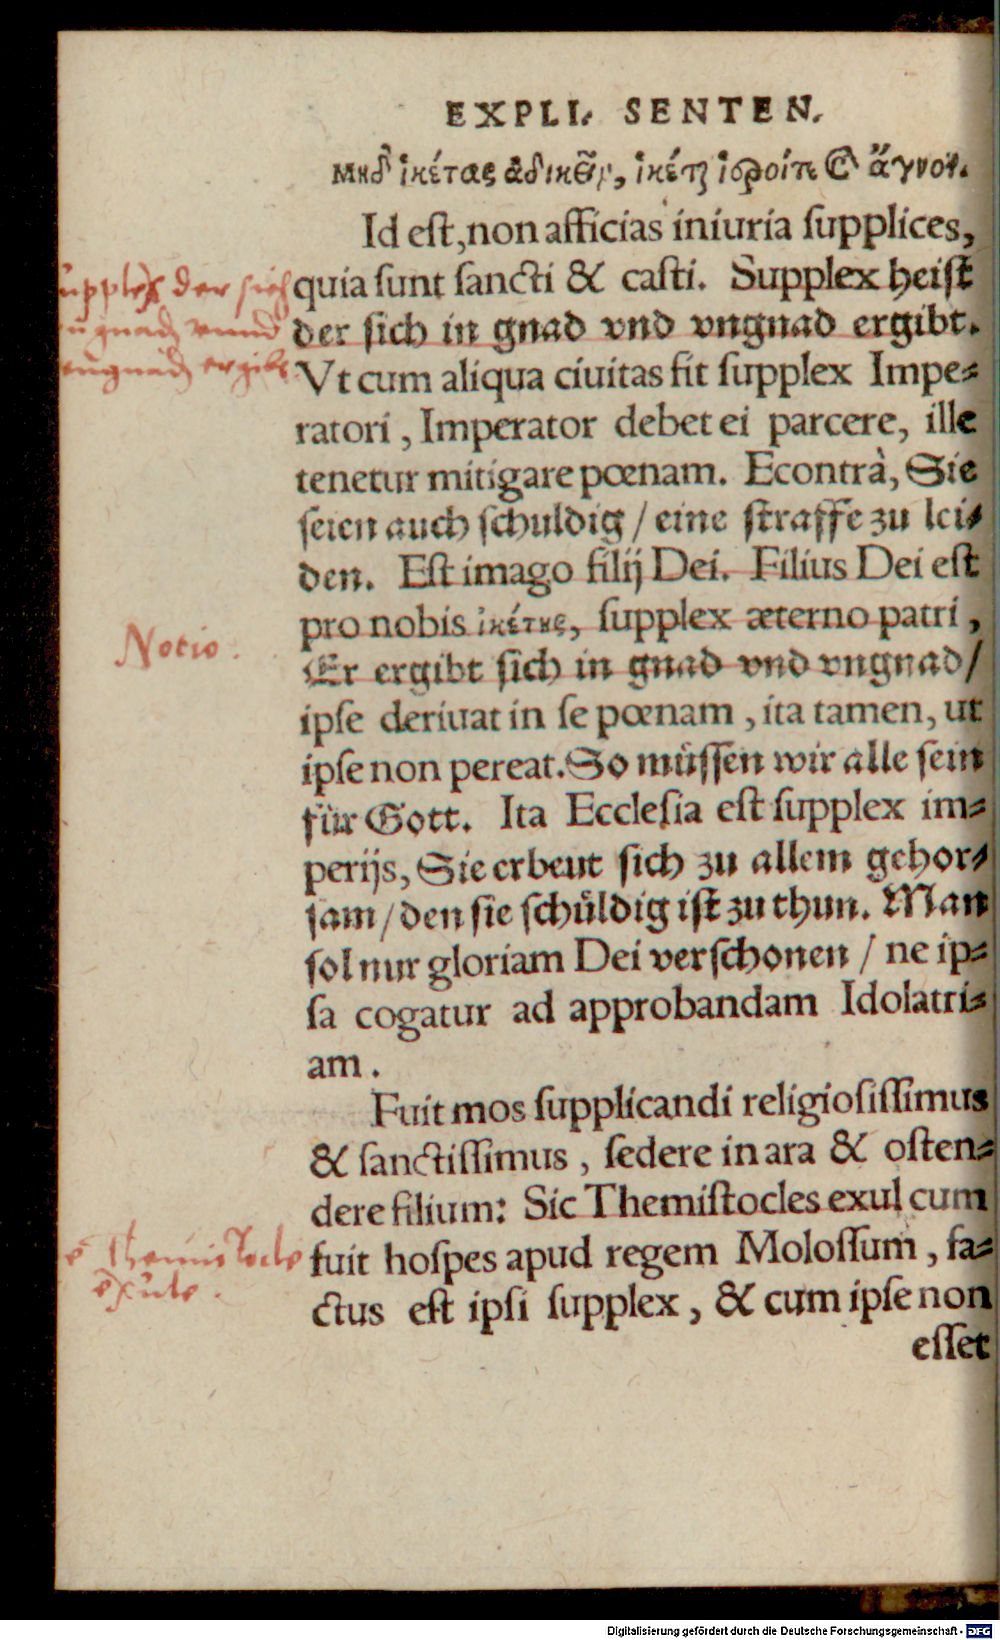 EXPLI. SENTEN.
μηδ' ἱκέτας ἀδικεῖν, ἱκέται ἱεροί τε καὶ ἁγνοί.
Id eſt, non afficias iniuria ſupplices,
quia ſunt ſancti & caſti. Supplex heiſt
der ſich in gnad vnd vngnad ergibt.
Vt cum aliqua ciuitas fit ſupplex Impe⸗
ratori, Imperator debet ei parcere, ille
tenetur mitigare pœnam. Econtrà, Sie
ſeien auch ſchuldig / eine ſtraffe zu lei⸗
den. Eſt imago filij Dei. Filius Dei eſt
pro nobis ἱκέτης, ſupplex æterno patri,
Er ergibt ſich in gnad vnd vngnad /
ipſe deriuat in ſe pœnam, ita tamen, ut
ipſe non pereat. So müſſen wir alle ſein
für Gott. Ita Eccleſia eſt ſupplex im⸗
perijs, Sie erbeut ſich zu allem gehor⸗
ſam / den ſie ſchüldig iſt zu thun. Man
ſol nur gloriam Dei verſchonen / ne ip⸗
ſa cogatur ad approbandam Idolatri⸗
am.
Fuit mos ſupplicandi religioſiſſimus
& ſanctiſſimus, ſedere in ara & oſten⸗
dere filium: Sic Themiſtocles exul cum
fuit hoſpes apud regem Moloſſum, fa⸗
ctus eſt ipſi ſupplex, & cum ipſe non
eſſet
upplex der sich
gnad vnnd
vngnad ergibt
Notio.
Themistocle
exule.
Digitalisierung gefördert durch die Deutsche Forschungsgemeinschaft - DFG